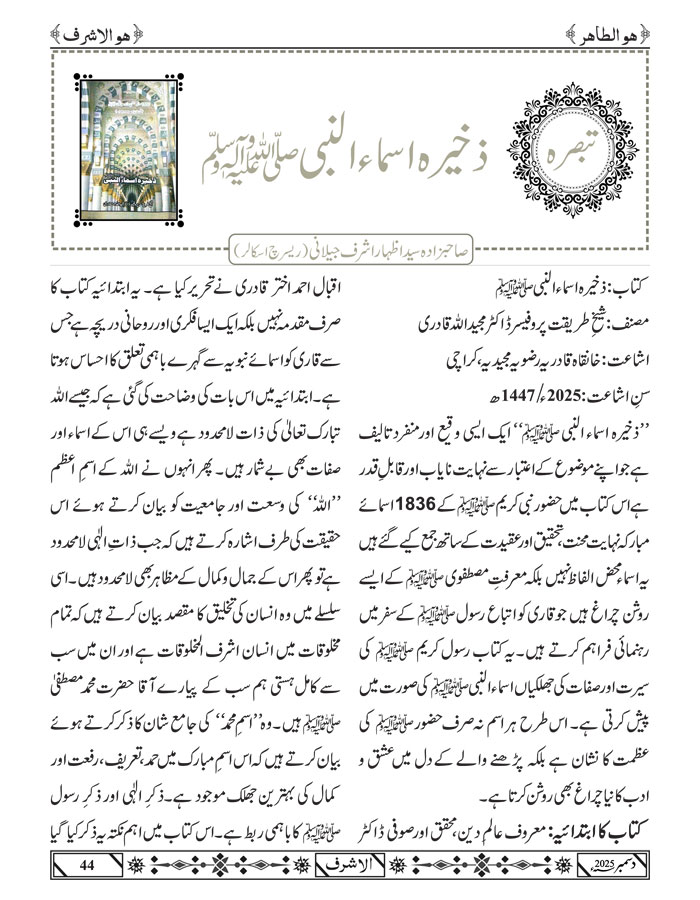 ﴿هو الطاهر﴾
﴿هو الاشرف﴾
تبصرہ
ذخیرہ اسماء النبی ﷺ
ذخیرہ اسماء النبی
صاحبزادہ سید اظہار اشرف جیلانی (ریسرچ اسکالر)
کتاب: ذخیرہ اسماء النبی ﷺ
مصنف: شیخِ طریقت پروفیسر ڈاکٹر مجید اللہ قادری
اشاعت: خانقاہ قادریہ رضویہ مجیدیہ، کراچی
سنِ اشاعت: 2025ء/1447ھ
’’ذخیرہ اسماء النبی ﷺ‘‘ ایک ایسی وقیع اور منفرد تالیف
ہے جو اپنے موضوع کے اعتبار سے نہایت نایاب اور قابلِ قدر
ہے اس کتاب میں حضور نبی کریم ﷺ کے 1836 اسمائے
مبارکہ نہایت محنت، تحقیق اور عقیدت کے ساتھ جمع کیے گئے ہیں
یہ اسماء محض الفاظ نہیں بلکہ معرفتِ مصطفوی ﷺ کے ایسے
روشن چراغ ہیں جو قاری کو اتباعِ رسول ﷺ کے سفر میں
رہنمائی فراہم کرتے ہیں۔ یہ کتاب رسول کریم ﷺ کی
سیرت اور صفات کی جھلکیاں اسماء النبی ﷺ کی صورت میں
پیش کرتی ہے۔ اس طرح ہر اسم نہ صرف حضور ﷺ کی
عظمت کا نشان ہے بلکہ پڑھنے والے کے دل میں عشق و
ادب کا نیا چراغ بھی روشن کرتا ہے۔
کتاب کا ابتدائیہ: معروف عالمِ دین، محقق اور صوفی ڈاکٹر
اقبال احمد اختر قادری نے تحریر کیا ہے۔ یہ ابتدائیہ کتاب کا
صرف مقدمہ نہیں بلکہ ایک ایسا فکری اور روحانی دریچہ ہے جس
سے قاری کو اسمائے نبویہ سے گہرے باہمی تعلق کا احساس ہوتا
ہے۔ ابتدائیہ میں اس بات کی وضاحت کی گئی ہے کہ جیسے اللہ
تبارک تعالیٰ کی ذات لامحدود ہے ویسے ہی اس کے اسماء اور
صفات بھی بے شمار ہیں۔ پھر انہوں نے اللہ کے اسمِ اعظم
’’اللہ‘‘ کی وسعت اور جامعیت کو بیان کرتے ہوئے اس
حقیقت کی طرف اشارہ کرتے ہیں کہ جب ذاتِ الٰہی لامحدود
ہے تو پھر اس کے جمال و کمال کے مظاہر بھی لامحدود ہیں۔ اسی
سلسلے میں وہ انسان کی تخلیق کا مقصد بیان کرتے ہیں کہ تمام
مخلوقات میں انسان اشرف المخلوقات ہے اور ان میں سب
سے کامل ہستی ہم سب کے پیارے آقا حضرت محمد مصطفیٰ
ﷺ ہیں۔ وہ ’’اسمِ محمد‘‘ کی جامع شان کا ذکر کرتے ہوئے
بیان کرتے ہیں کہ اس اسمِ مبارک میں حمد، تعریف، رفعت اور
کمال کی بہترین جھلک موجود ہے۔ ذکرِ الٰہی اور ذکرِ رسول
ﷺ کا باہمی ربط ہے۔ اس کتاب میں اہم نکتہ یہ ذکر کیا گیا
دسمبر 2025ء
الاشرف
44